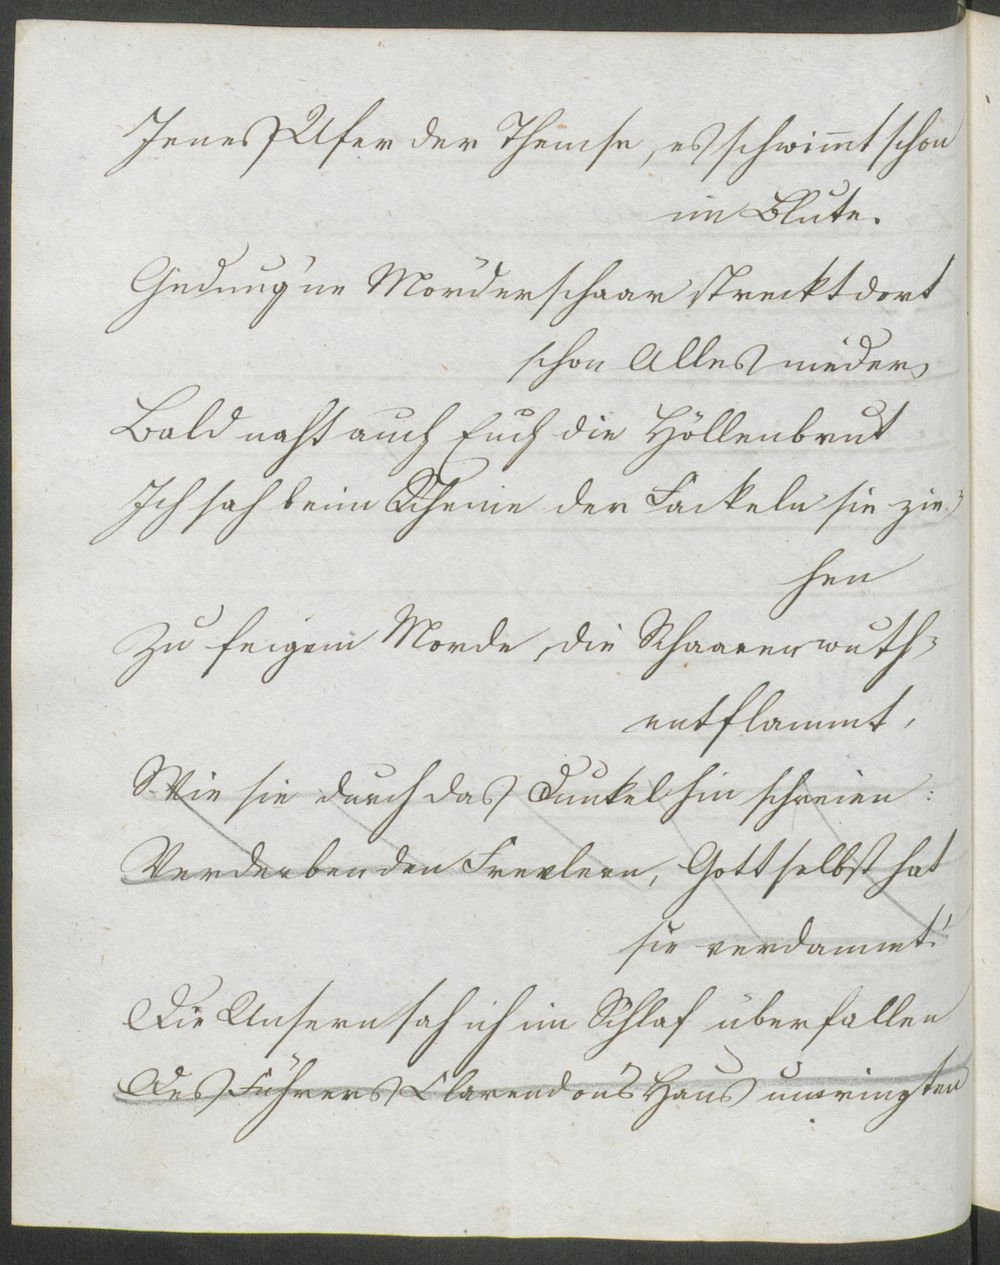 Jenes Ufer der Themse, es schwim̄t schon
im Blute.
Gedung'ne Mörderschaar streckt dort
schon Alles nieder,
Bald naht auch Euch die Höllenbrut
Ich sah beim Scheine der Fackeln sie zie-
hen
Zu feigem Morde, die Schaaren wuth-
entflammt,
Wie sie durch das Dunkel hin schreien:
Verderben den Frevlern, Gott selbst hat
sie verdammt!
Die Unsern sah ich im Schlaf überfallen
Des Führers Clarendon's Haus umringten